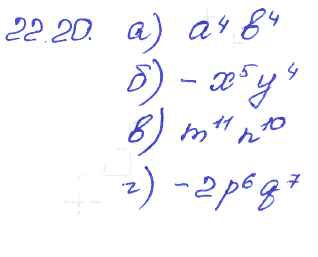 22.20. а) a⁴b⁴
б) - x⁵y⁴
в) m¹¹n¹⁰
г) - 2p⁶q⁷